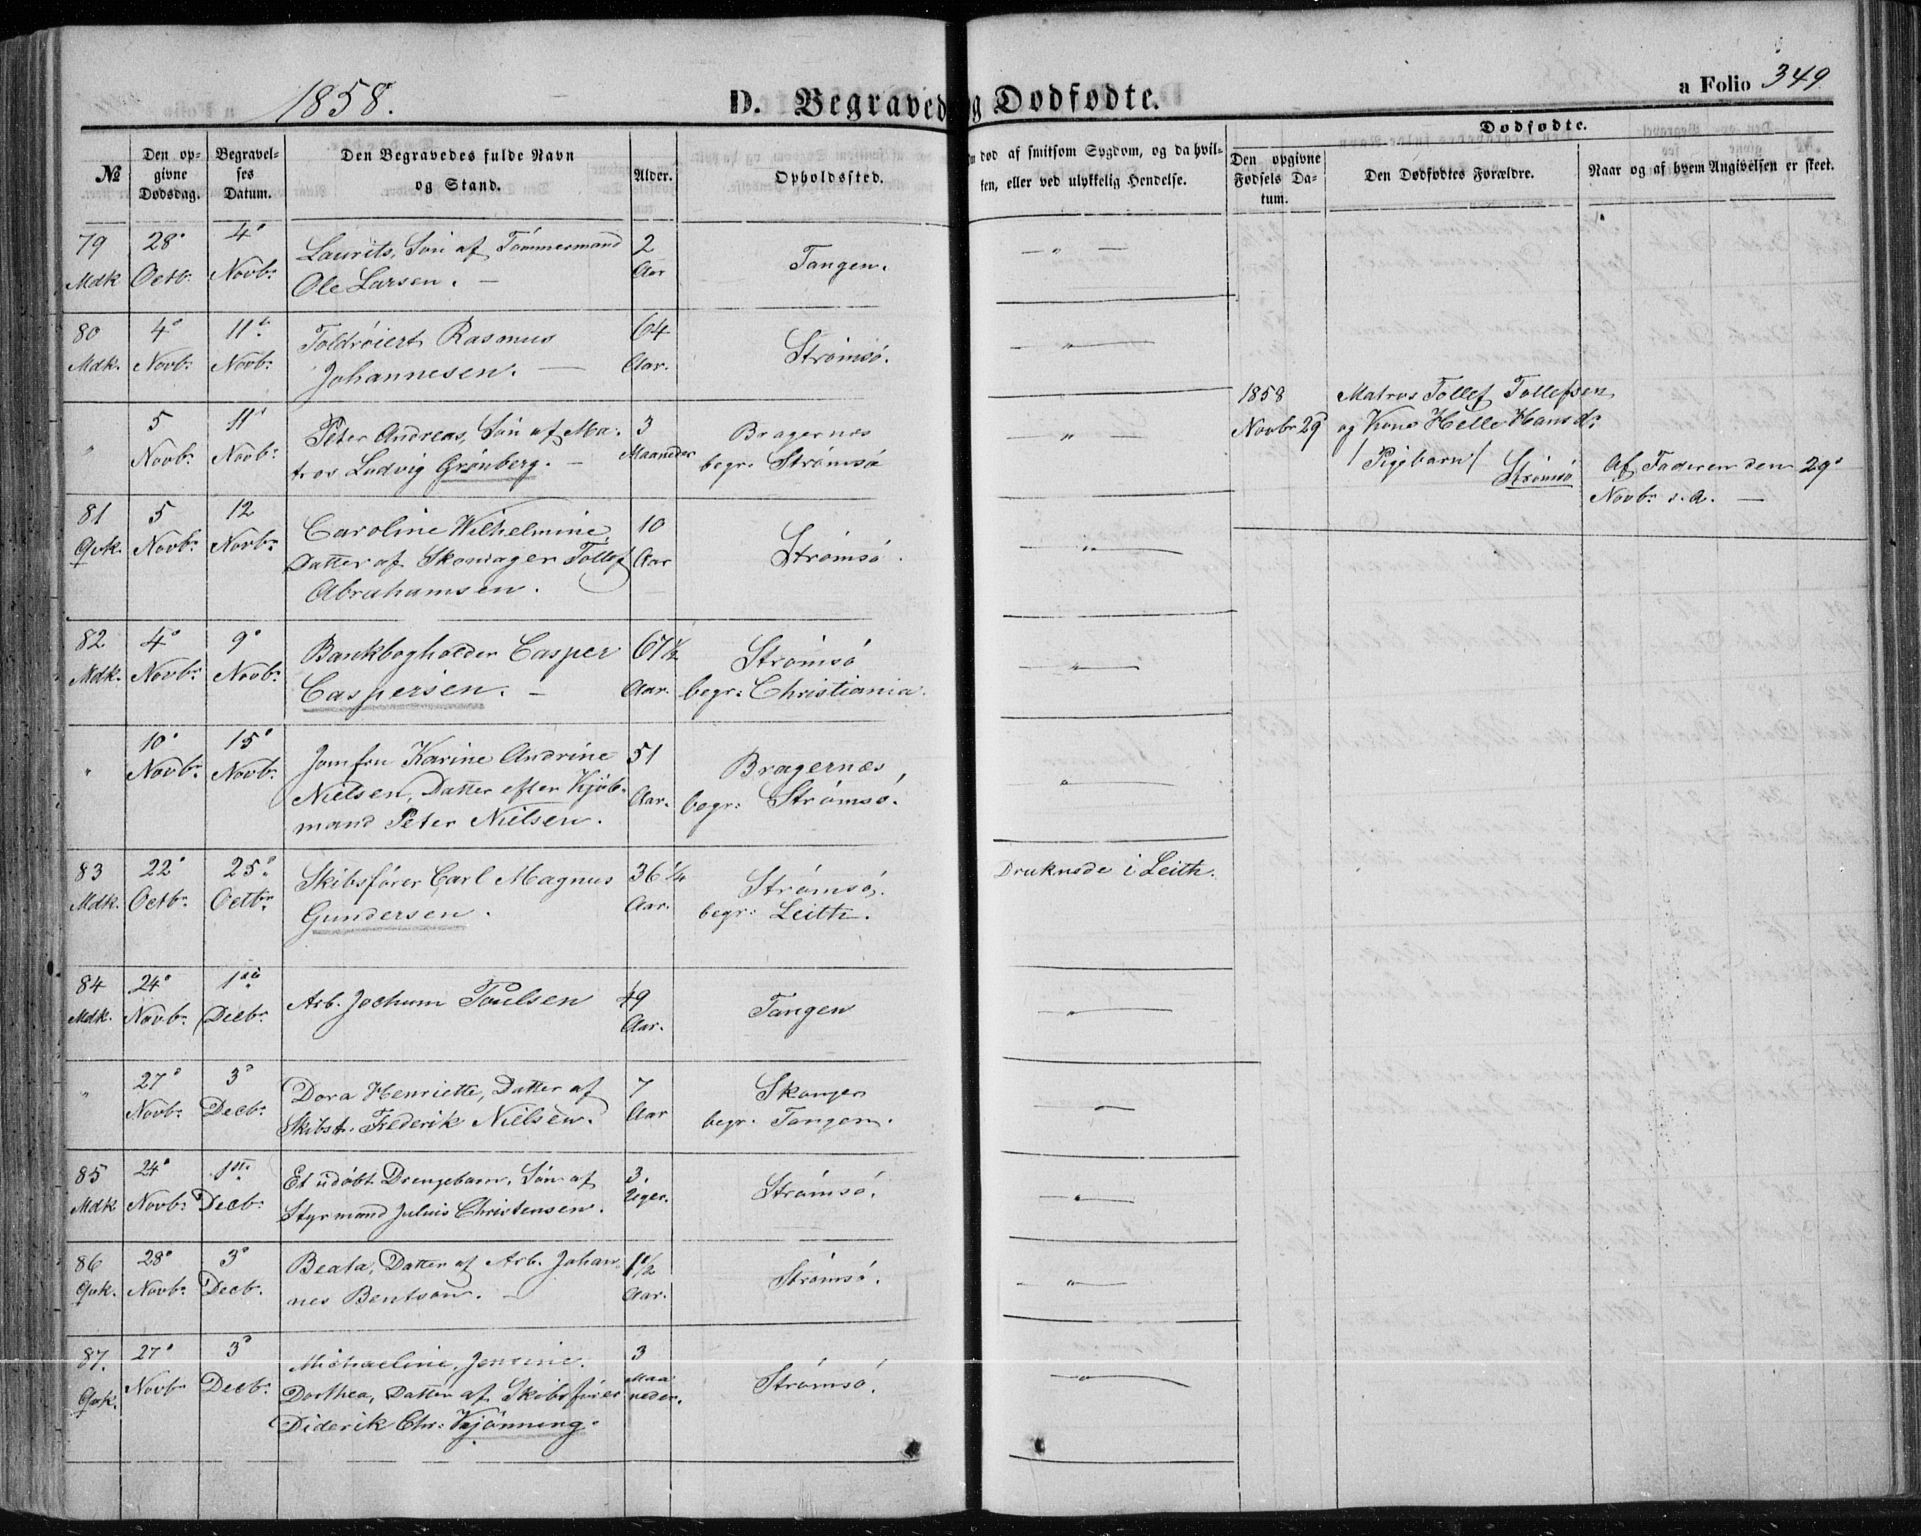 1858.
D. Begravede og Dødfødte.
a Folio 349
№
Den opgivne Dødsdag.
Begravelses Datum.
Den Begravedes fulde Navn og Stand.
Alder.
Opholdssted.
død af smitsom Sygdom, og da hvilken, eller ved ulykkelig Hendelse.
Dødfødte.
Den opgivne Fødsels Datum.
Den Dødfødtes Forældre.
Naar og af hvem Angivelsen er skeet.
79 28° 4° Laurits, Søn af Tømmermand 2
Mdk Octb: Novb: Ole Larsen. — Aar Tangen. — " —
80 4° 11te Toldrøiert Rasmus 64
Mdk. Novb: Novb: Johannesen. — Aar. Strømsø. — " —
" 5 11te Peter Andreas, Søn af Ma- 3 Bragernes
Novb: Novb: tros Ludvig Grønberg. — Maaneder begr: Strømsø — " —
1858 Matros Tollef Tollefsen
Novbr 29° og Kone Helle Hansd:
/Pigebarn/ Strømsø
Af Faderen den 29°
Novbr s. a. —
81 5 12 Caroline Wilhelmine, 10
Qvk. Novb: Novb: Datter af Skomager Tollef Aar Strømsø. — " —
Abrahamsen.
82 4° 9° Bankbogholder Casper 67½ Strømsø
Mdk. Novb: Novb: Caspersen. — Aar. begr: Christiania. — " —
" 10° 15° Jomfru Karine Andrine 51 Bragernes,
Novb: Novb: Nielsen, Datter efter Kjøb- Aar. begr: Strømsø. — " —
mand Peter Nielsen.
83 22° 25° Skibsfører Carl Magnus 36¼ Strømsø,
Mdk. Octb: Octbr. Gundersen. Aar. begr: Leith. Druknede i Leith.
84 24° 1ste Arb. Jochum Poulsen 49
Mdk. Novb: Decb: Aar. Tangen — " —
" 27° 3° Dora Henriette, Datter af 7
Novb: Decb: Skibst. Frederik Nielsen. Aar begr: Tangen. — " —
85 24° 1ste Et udøbt Drengebarn, Søn af 3.
Mdk Novb: Decb: Styrmand Julius Christensen. Uger. Strømsø. — " —
86 28° 3° Beata, Datter af Arb. Johan- 1½
Qvk. Novb: Decb. nes Bentson. — Aar. Strømsø. — " —
87. 27° 3° Michaeline, Jensine. 3
Qvk. Novb Decb: Dorthea, Datter af Skibsfører Maaneder. Strømsø. — " —
Diderik Chr: Kjønning.